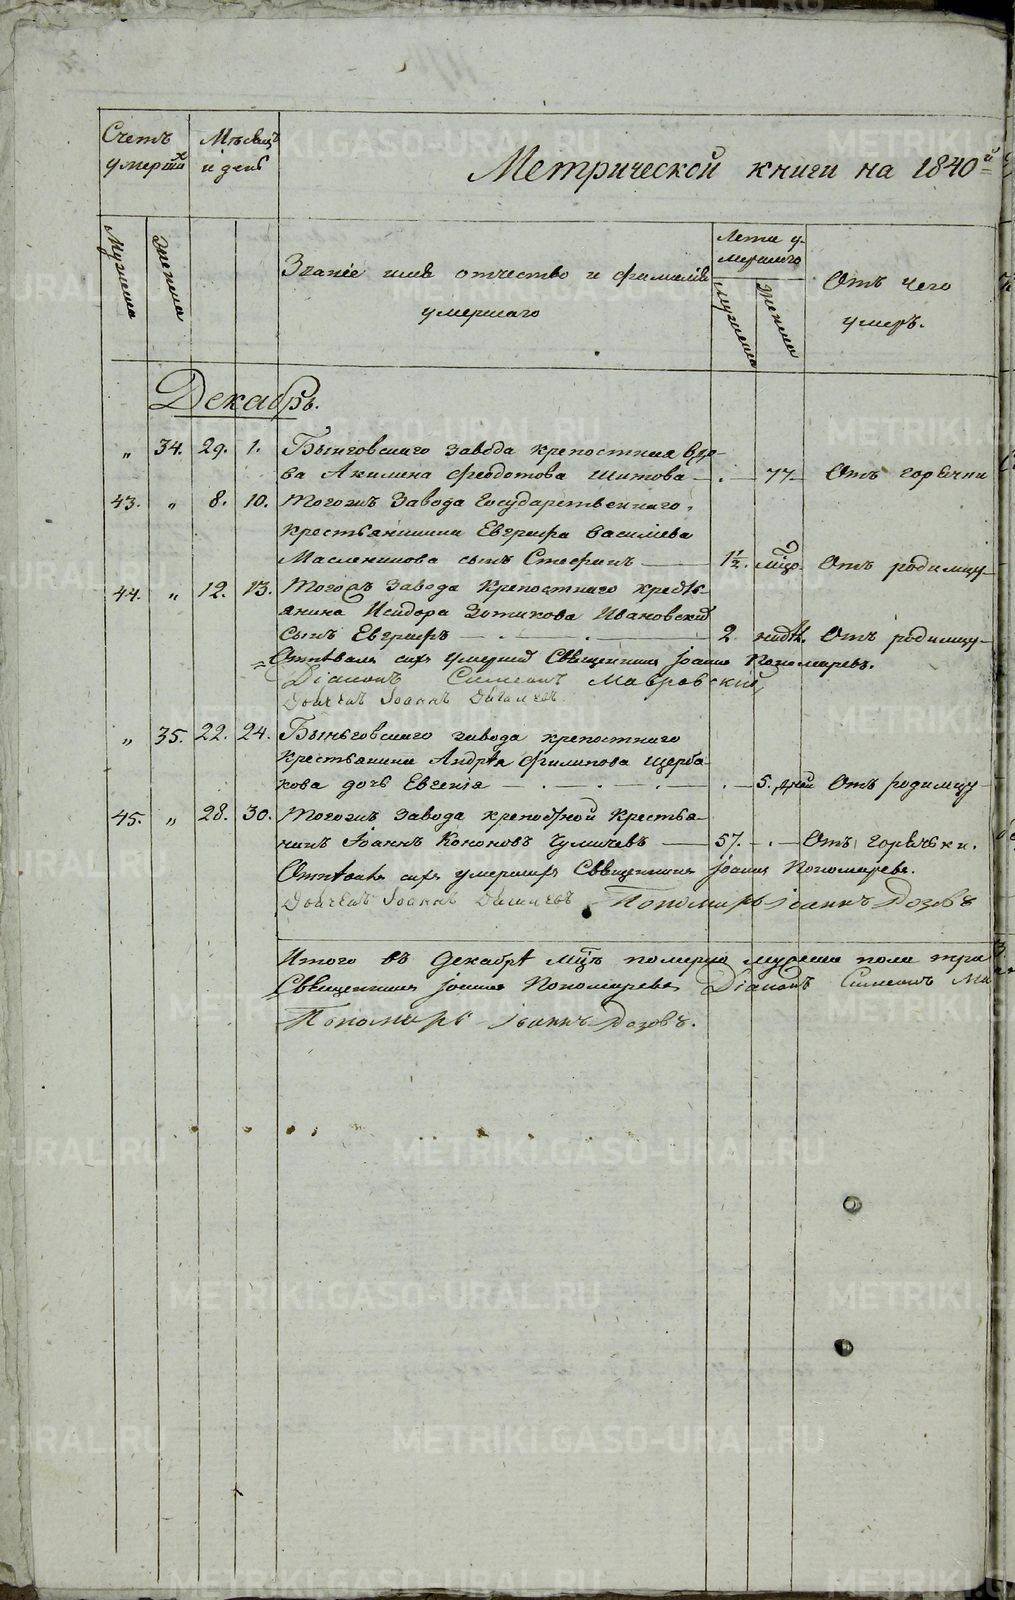 Счетъ умершихъ
Мѣсяцъ и день
Метрической книги на 1840й
Мужеска
Женска
Званіе имя отчество и фамилія
умершаго
Лета умершаго
мужеска
женска
Отъ чего
умеръ.
Декабрь.
„ 34. 29. 1. Бынговскаго завода крепостная вдо-
ва Акилина Феодотова Шитова — . — 77 — Отъ горячки
43. „ 8. 10. Тогожъ Завода Государственнаго
крестьянина Евграфа Васильева
Масленикова сынъ Стефанъ — 1½. мѣсо. Отъ родимцу
44. „ 12. 13. Тогожъ Завода Крепостнаго кресть-
янина Исидора Зотикова Ивановский
сынъ Евграфъ — . — . — 2. недѣл. Отъ родимцу
Отпѣвалъ сихъ умершихъ Священникъ Іоаннъ Пономаревъ.
Діаконъ Симеонъ Мавровский
Дьячекъ Іоаннъ
„ 35. 22. 24. Быньговскаго завода крепостнаго
крестьянина Андрѣя Филипова Щерба-
кова дочь Евгенія — . — . — . — 5. дней Отъ родимцу
45. „ 28. 30. Тогожъ Завода крепостной Крестья-
нинъ Іоаннъ Кононовъ Чумичевъ — 57. — . — Отъ горячьки.
Отпѣвалъ сихъ умершихъ Священникъ Іоаннъ Пономаревъ.
Дьячекъ Іоаннъ Пономарь Іоаннъ Дозовъ
Итого въ Декабрѣ мцѣ померло мужеска пола три
Священникъ Іоаннъ Пономаревъ Діаконъ Симеонъ Ма
Пономарь Іоаннъ Дозовъ.
METRIKI.GASO-URAL.RU